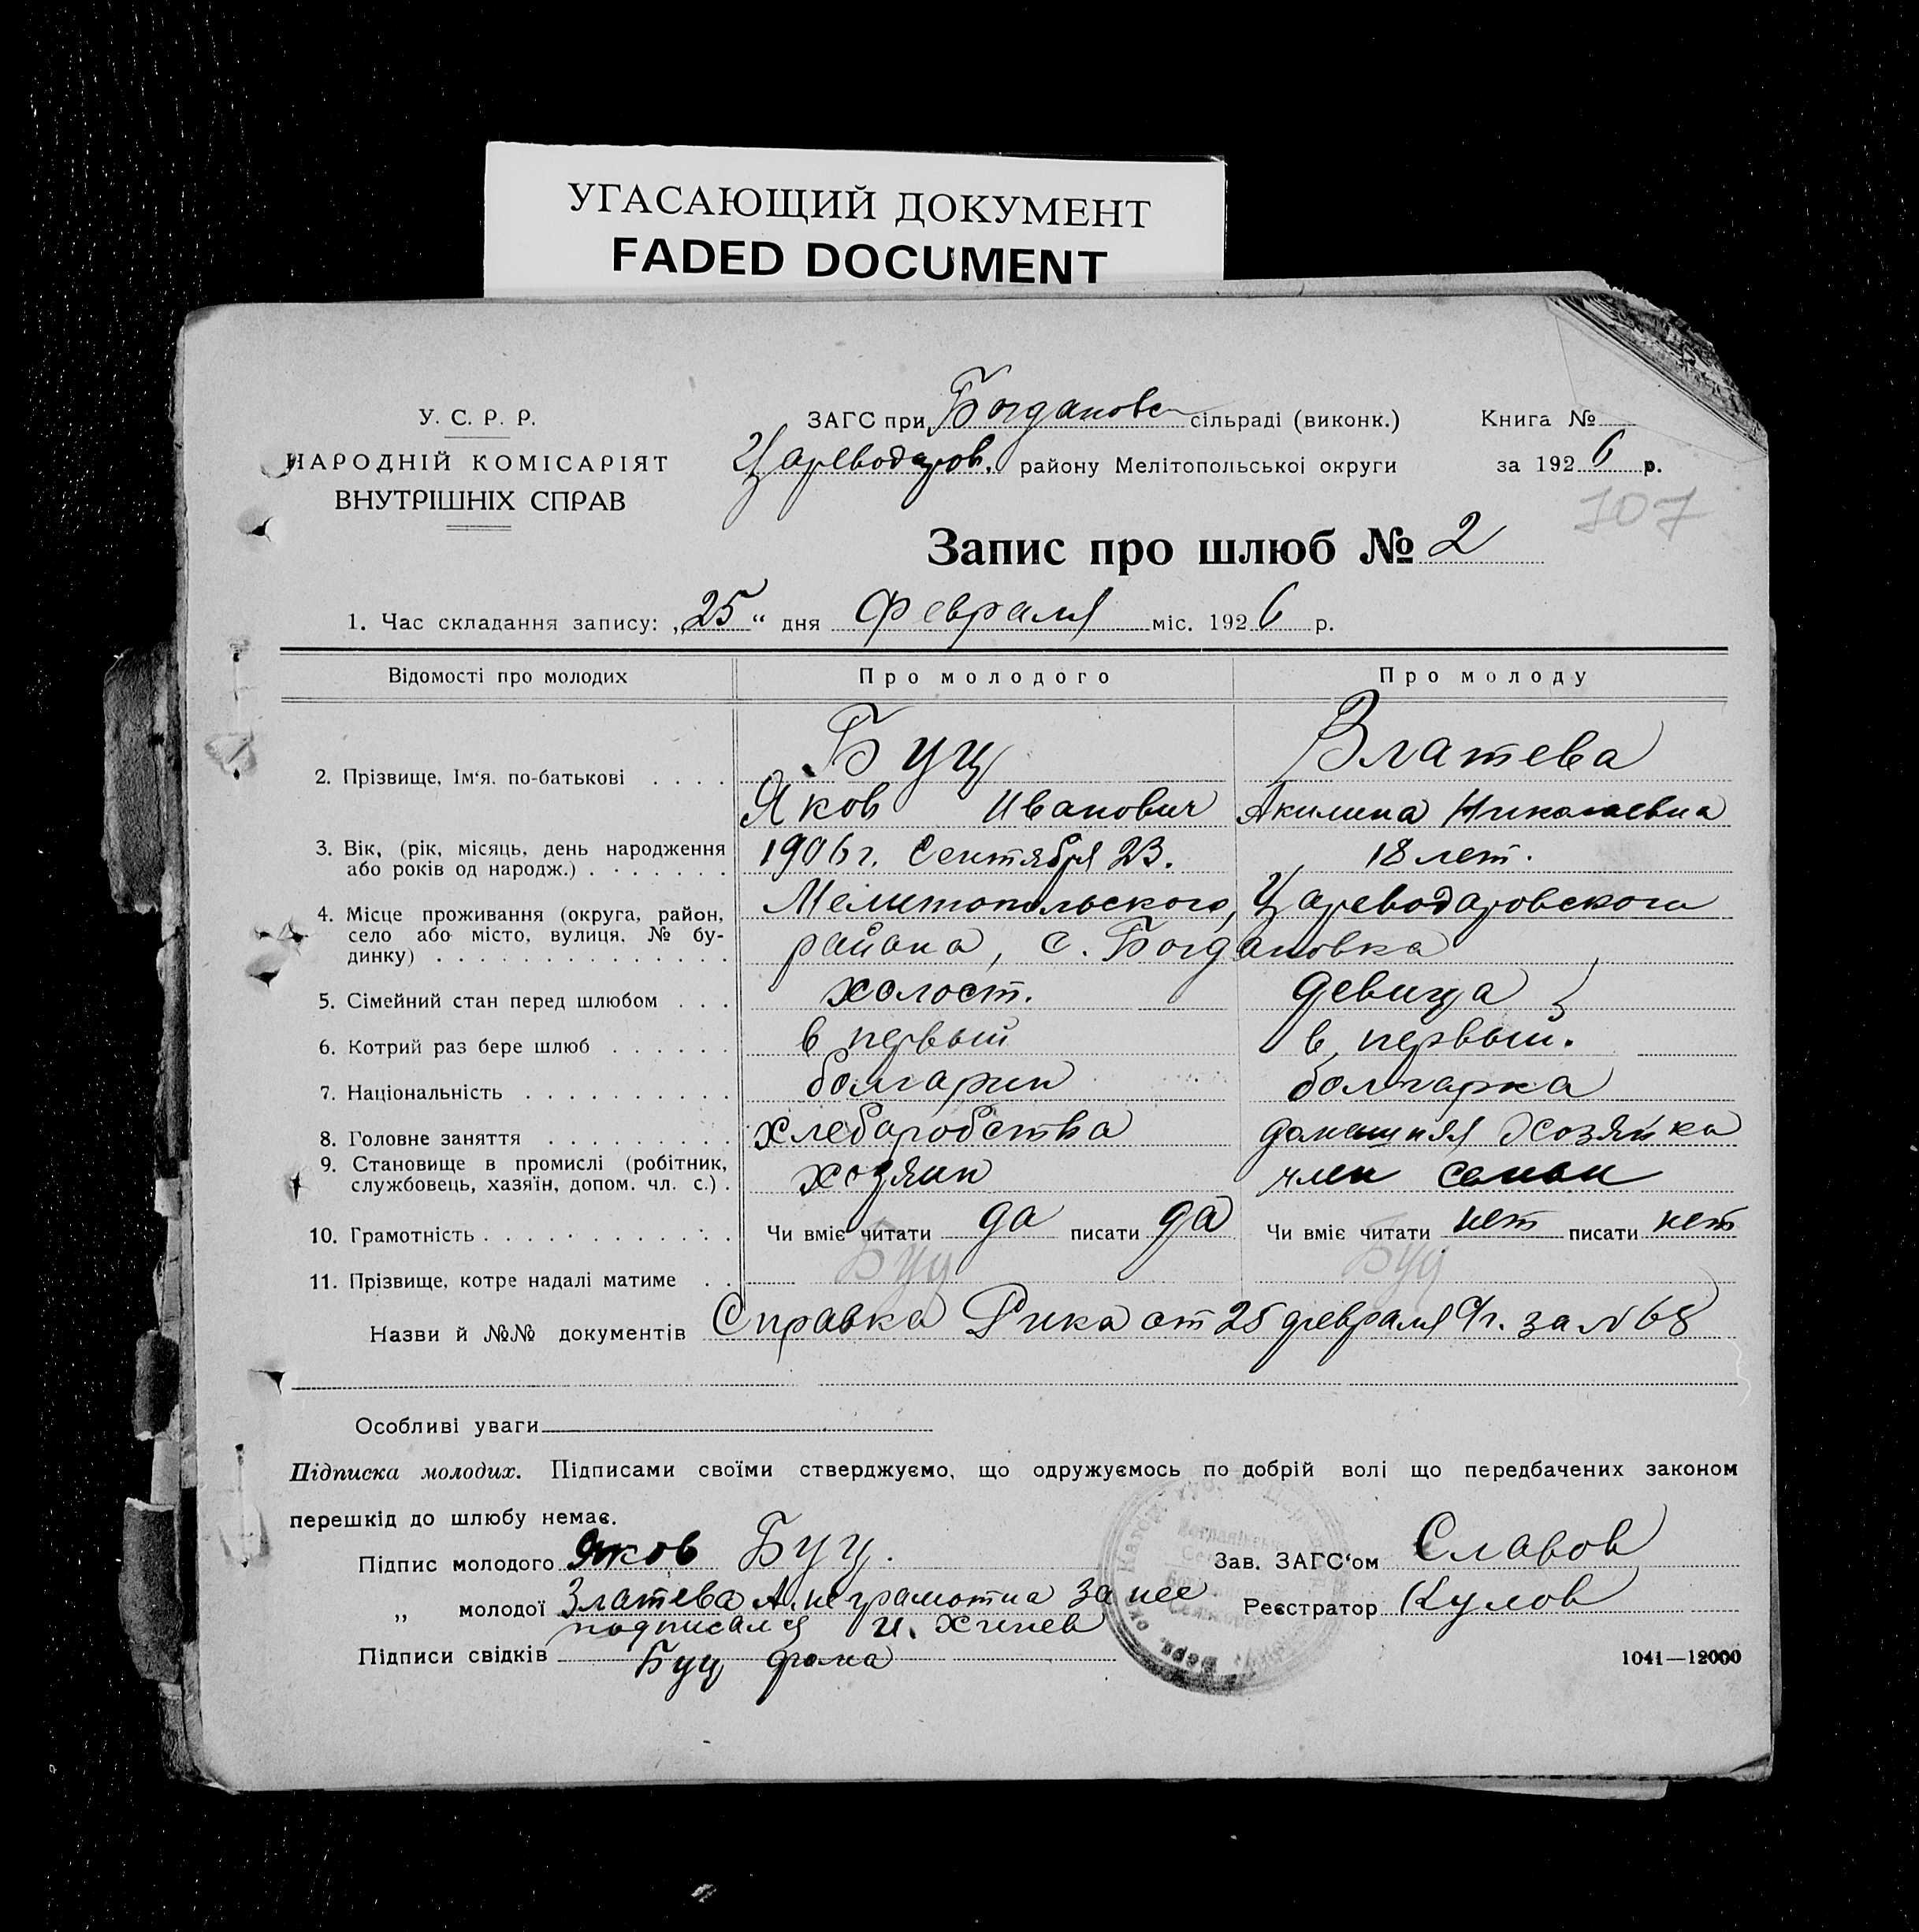 УГАСАЮЩИЙ ДОКУМЕНТ
FADED DOCUMENT
У. С. Р. Р.
НАРОДНІЙ КОМІСАРІЯТ
ВНУТРІШНІХ СПРАВ
ЗАГС при Богдановс сільраді (виконк.)
Цареводаров. району Мелітопольської округи
Книга №
за 1926 р.
107
Запис про шлюб № 2
1. Час складання запису: „25“ дня Февраля міс. 1926 р.
Відомості про молодих Про молодого Про молоду
2. Прізвище, Ім‘я. по-батькові . . . . Буц Златева
Яков Иванович Акилина Николаевна
3. Вік, (рік, місяць, день народження 1906 г. Сентября 23. 18 лет.
або років од народж.) . . . . . . .
4. Місце проживання (округа, район, Мелитопольского, Цареводаровского
село або місто, вулиця, № бу- района, с. Богдановка
динку) . . . . . . . . . . . . . .
5. Сімейний стан перед шлюбом . . . холост. девица
6. Котрий раз бере шлюб . . . . . . в первый в первый.
7. Національність . . . . . . . . . . болгарин болгарка
8. Головне заняття . . . . . . . . . хлебаробства домашняя хозяйка
9. Становище в промислі (робітник, хозяин член семьи
службовець, хазяїн, допом. чл. с.) .
10. Грамотність . . . . . . . . . . . . Чи вміє читати да писати да Чи вміє читати нет писати нет
11. Прізвище, котре надалі матиме . . Буц Буц
Назви й №№ документів Справка Рика от 25 февраля с/г. за № 68
Особливі уваги
Підписка молодих. Підписами своїми стверджуємо, що одружуємось по добрій волі що передбачених законом
перешкід до шлюбу немає.
Підпис молодого Яков Буц. Зав. ЗАГС‘ом Славов
„ молодої Златева А. неграмотна за нее Реєстратор Кулов
подписался И.
Підписи свідків Буц фома
1041—12000